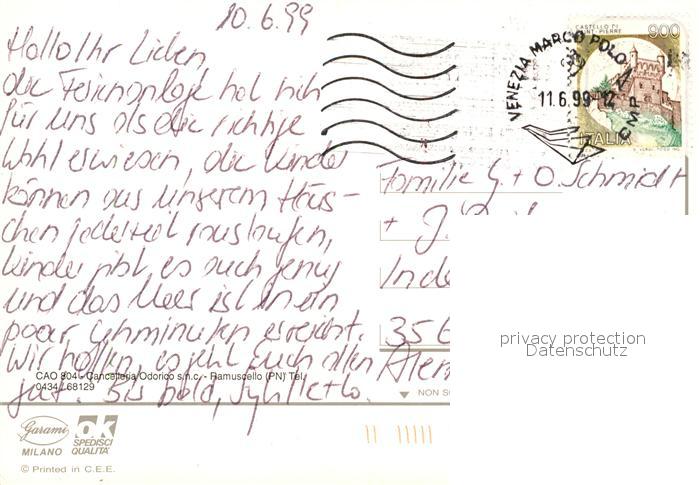 10.6.99
Hallo Ihr Lieben,
die Ferienanlage hat sich
für uns als die richtige
Wahl erwiesen, die Kinder
können aus unserem Häus-
chen jederzeit rauslaufen,
Kinder gibt es auch genug
und das Meer ist in ein
paar Gehminuten erreicht.
Wir hoffen, es geht Euch allen
gut. Bis bald, Sybille + Co.
CASTELLO DI
SAINT-PIERRE
900
ITALIA
VENEZIA MARCO POLO
11.6.99-12
CMP
Familie G. + O. Schmidt
+ J.
Inde
356
privacy protection
Datenschutz
CAO 804 - Cancelleria Odorico s.n.c. - Ramuscello (PN) Tel.
0434 / 68129
NON S
Garami
MILANO
ok
SPEDISCI
QUALITA'
© Printed in C.E.E.